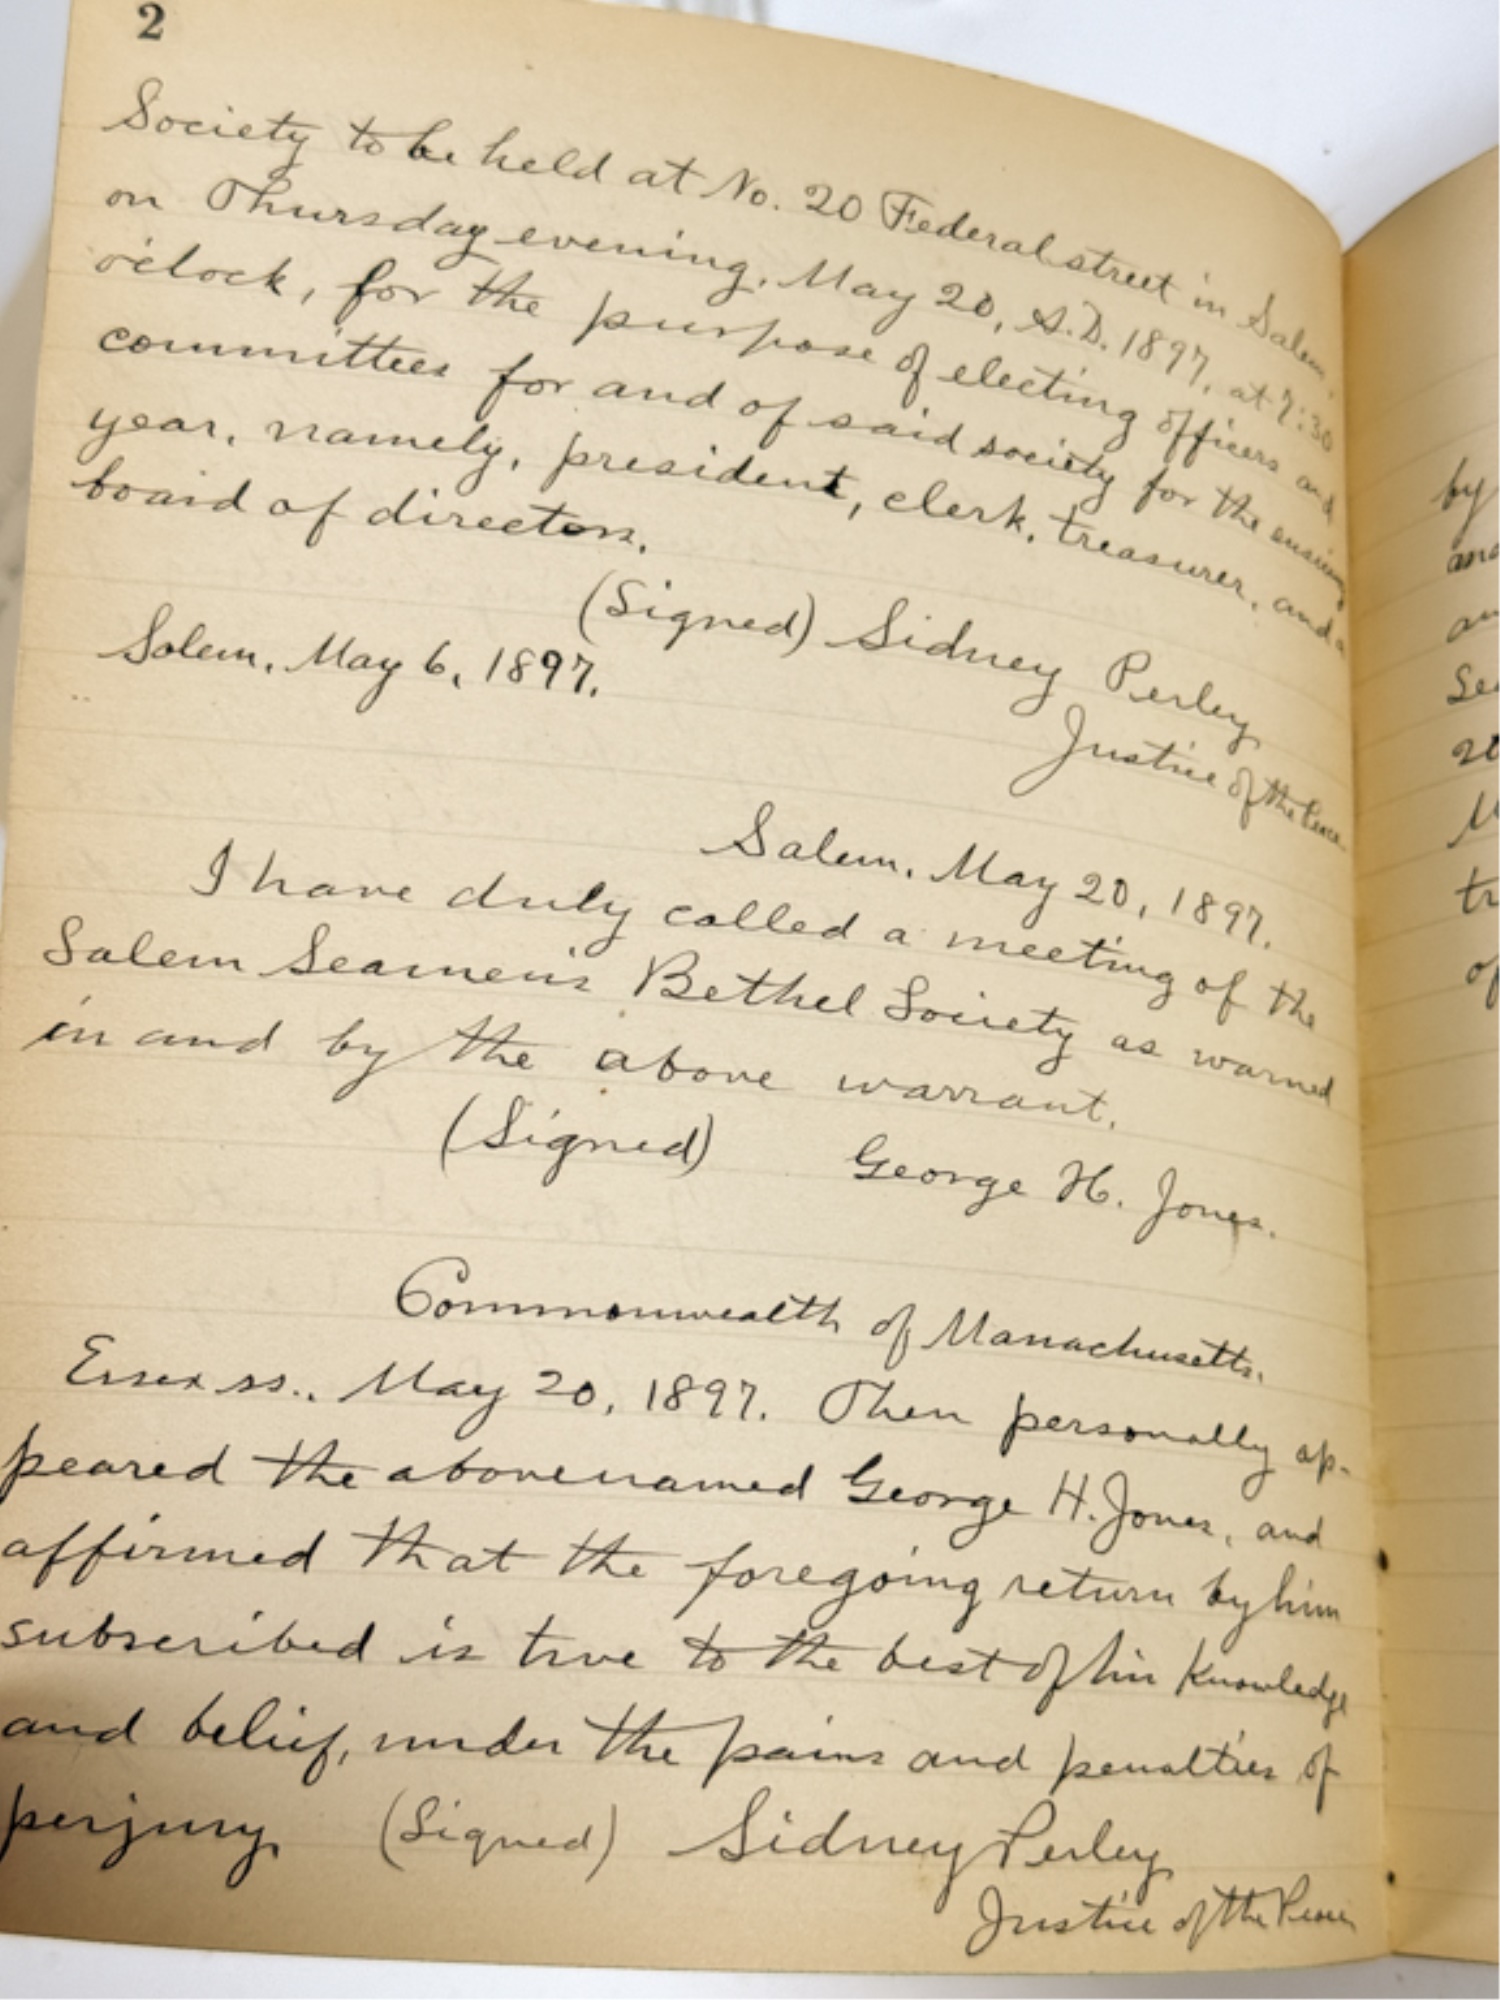 2
Society to be held at No. 20 Federal street in Salem,
on Thursday evening, May 20, A.D. 1897, at 7:30
o'clock, for the purpose of electing officers and
committees for and of said society for the ensuing
year, namely, president, clerk, treasurer, and a
board of directors.
(Signed) Sidney Perley
Justice of the Peace.
Salem, May 6, 1897.
Salem, May 20, 1897.
I have duly called a meeting of the
Salem Seamen's Bethel Society as warned
in and by the above warrant.
(Signed) George H. Jones.
Commonwealth of Massachusetts.
Essex ss., May 20, 1897. Then personally ap-
peared the abovenamed George H. Jones, and
affirmed that the foregoing return by him
subscribed is true to the best of his knowledge
and belief, under the pains and penalties of
perjury. (Signed) Sidney Perley
Justice of the Peace
by
and
20
of